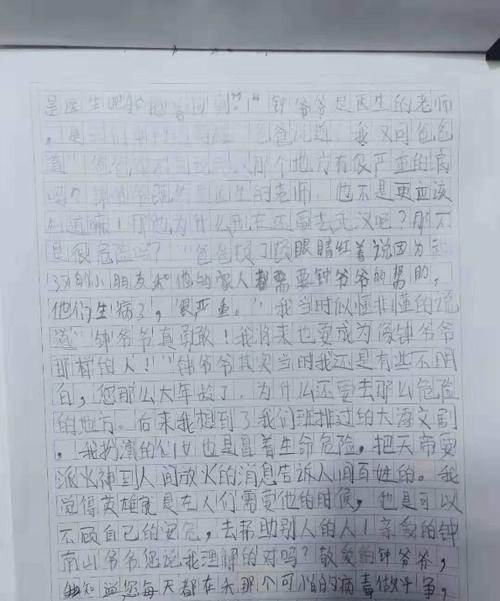 是医生吧？"他答回到"！"钟爷爷是医生的老师
，是 爸爸说道。我又问爸爸
道"爸爸 那个地方有很严重的病
吗？钟爷爷既然是医生的老师，也不是更应该
知道嘛！那他为什么现在还要去武汉吧？那不
是很危险吗？"爸爸 眼睛红着说因为武
汉的小朋友和他的家人都需要钟爷爷的帮助，
他们生病了，很严重。"我当时似懂非懂的说
道"钟爷爷真勇敢！我将来也要成为像钟爷爷
那样的人！"钟爷爷其实当时我还是有些不明
白，您那么大年 了，为什么还要去那么危险
的地方。后来我想到了我们班排过的大海文剧
，我扮演的 也是冒着生命危险，把天帝要
派火神到人间放火的消息告诉人间百姓的。我
觉得英雄就是在人们需要他的时候，也是可以
不顾自己的安危，去帮助别人的人！亲爱的钟
南山爷爷您说我理解的对吗？敬爱的钟爷爷，
我知道您每天都在和那个可 的病毒做斗争，